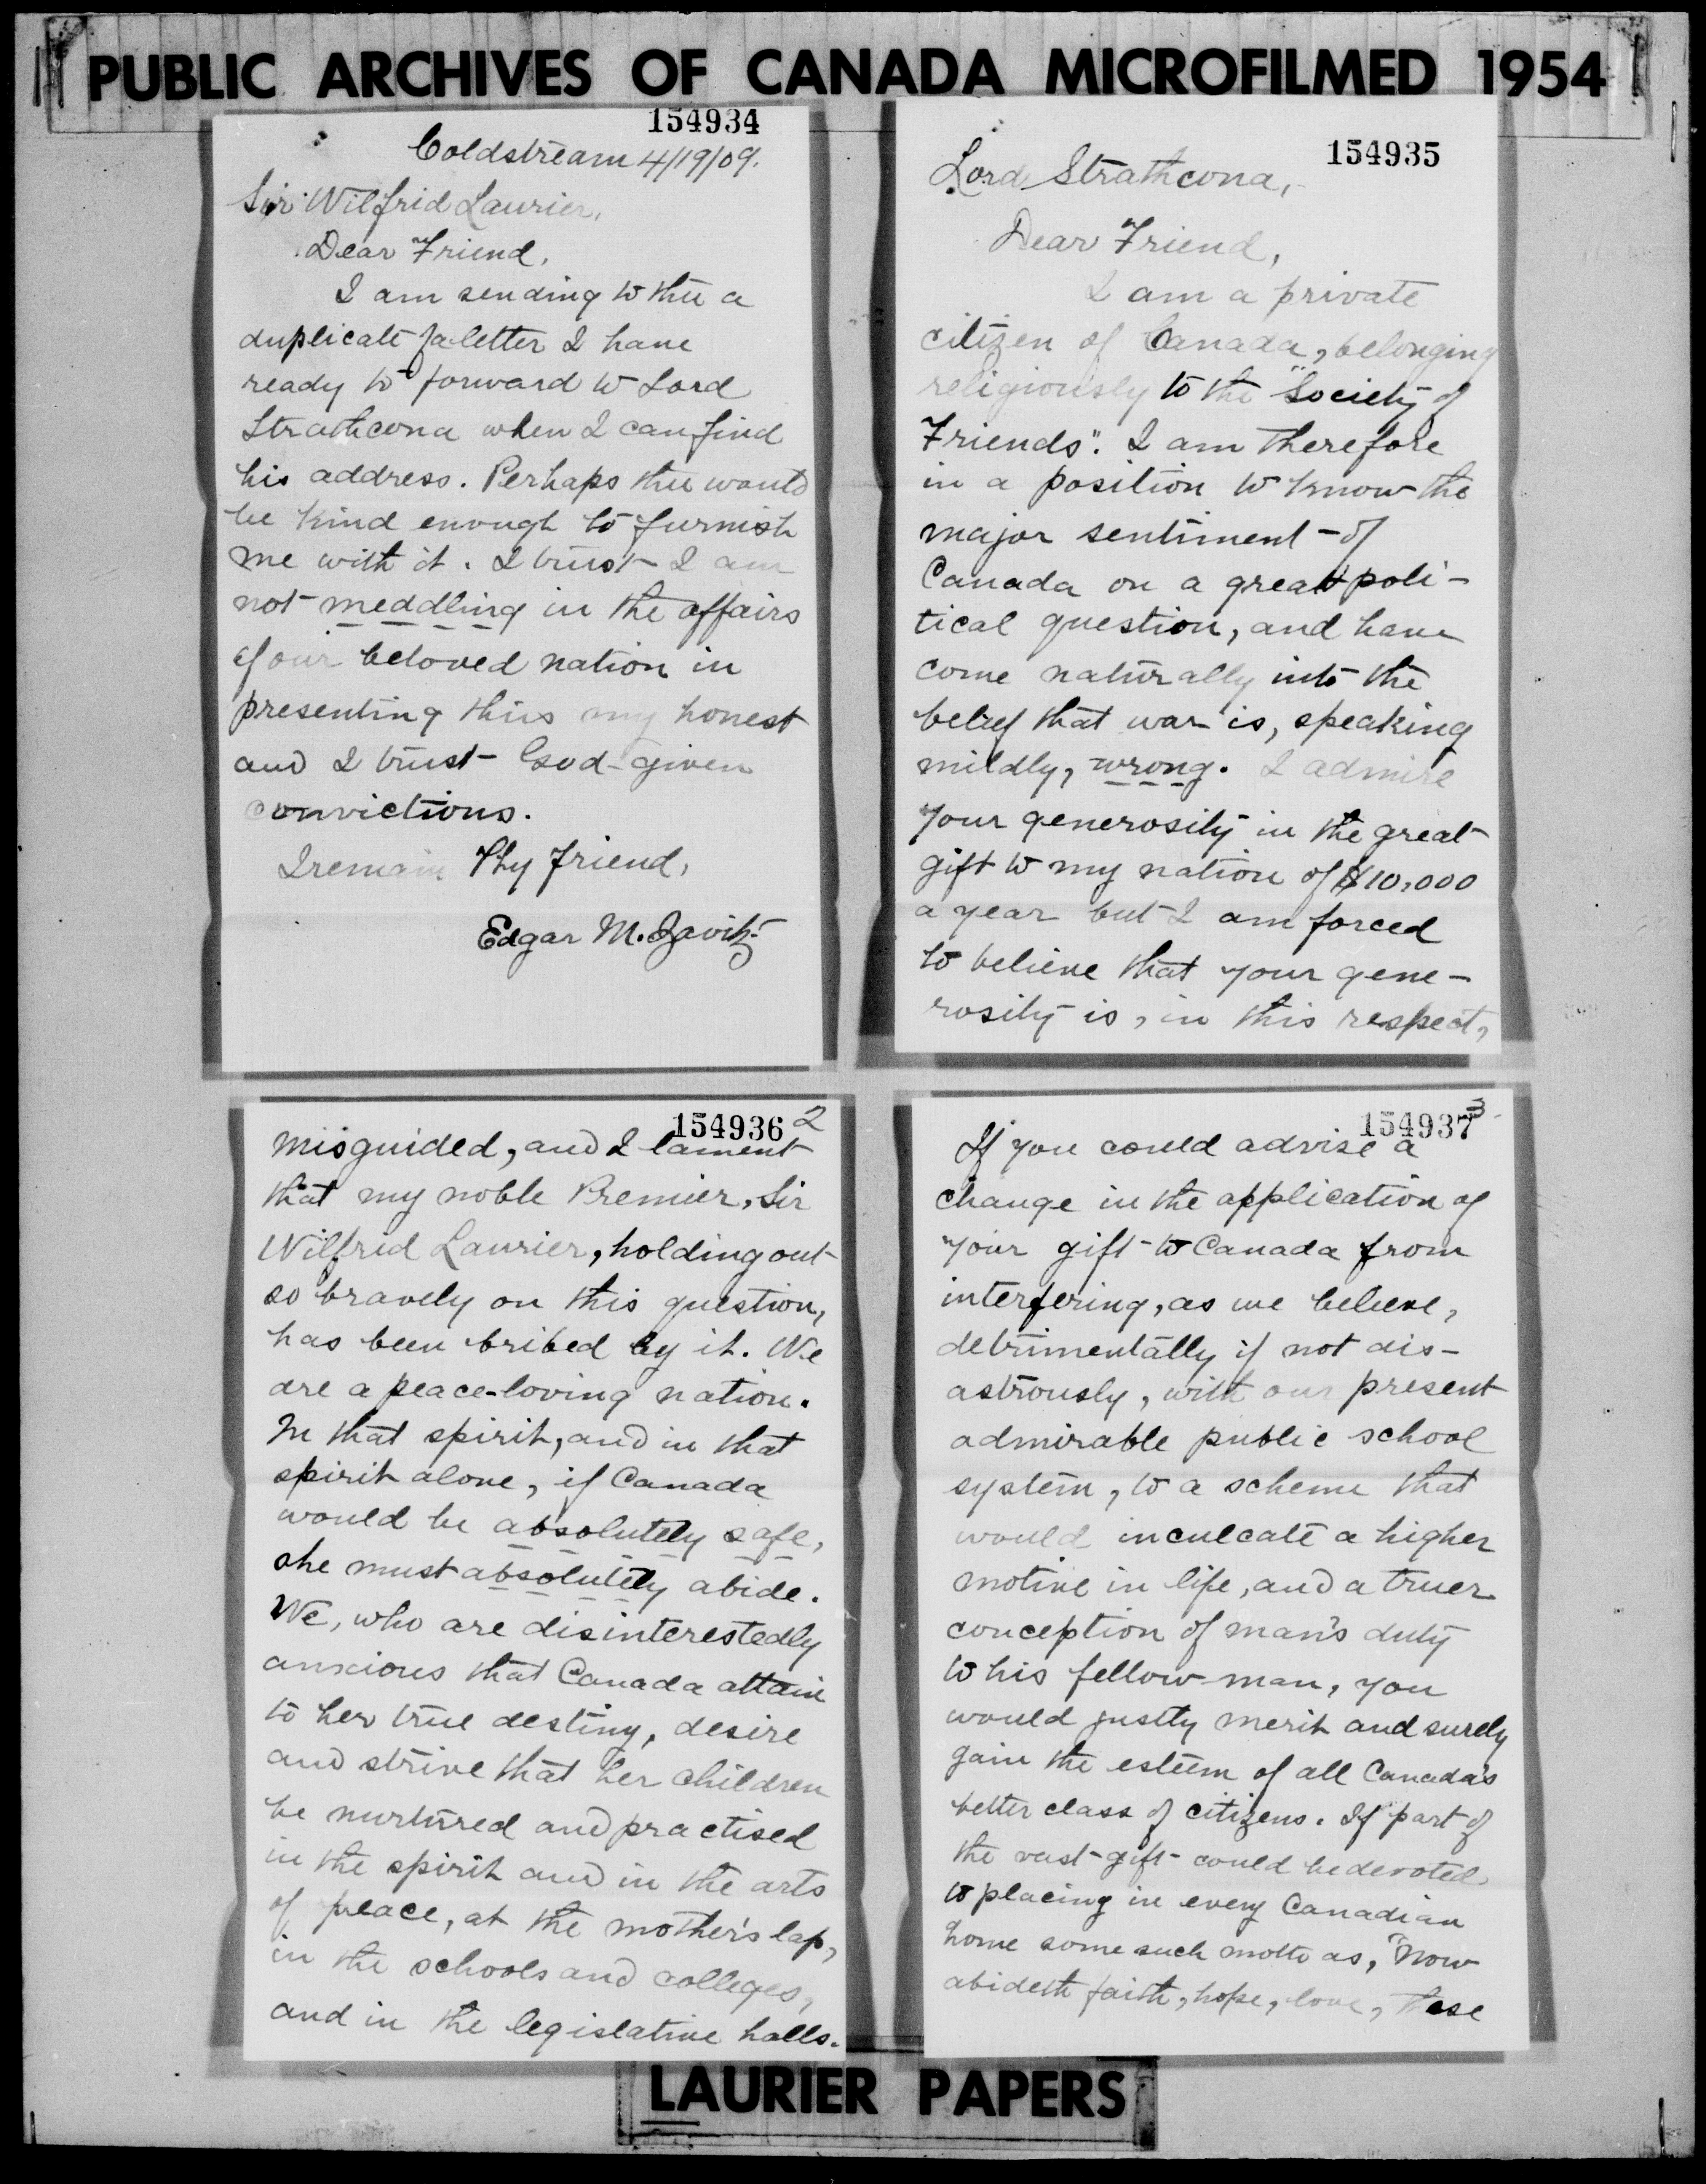 PUBLIC ARCHIVES OF CANADA MICROFILMED 1954
154934
Coldstream 4/19/09.
Sir Wilfrid Laurier,
Dear Friend,
I am sending to thee a
duplicate of a letter I have
ready to forward to Lord
Strathcona when I can find
his address. Perhaps thee would
be kind enough to furnish
me with it. I trust I am
not meddling in the affairs
of our beloved nation in
presenting this my honest
and I trust God-given
convictions.
I remain Thy friend,
Edgar M. Zavitz
154935
Lord Strathcona,
Dear Friend,
I am a private
citizen of Canada, belonging
religiously to the "Society of
Friends". I am therefore
in a position to know the
major sentiment of
Canada on a great poli-
tical question, and have
come naturally into the
belief that war is, speaking
mildly, wrong. I admire
your generosity in the great
gift to my nation of $10,000
a year but I am forced
to believe that your gene-
rosity is, in this respect,
154936 2
misguided, and I lament
that my noble Premier, Sir
Wilfrid Laurier, holding out
so bravely on this question,
has been bribed by it. We
are a peace-loving nation.
In that spirit, and in that
spirit alone, if Canada
would be absolutely safe,
she must absolutely abide.
We, who are disinterestedly
anxious that Canada attain
to her true destiny, desire
and strive that her children
be nurtured and practised
in the spirit and in the arts
of peace, at the mother's lap,
in the schools and colleges,
and in the legislative halls.
154937 3
If you could advise a
change in the application of
your gift to Canada from
interfering, as we believe,
detrimentally if not dis-
astrously, with our present
admirable public school
system, to a scheme that
would inculcate a higher
motive in life, and a truer
conception of man's duty
to his fellow-man, you
would justly merit and surely
gain the esteem of all Canada's
better class of citizens. If part of
the vast gift could be devoted
to placing in every Canadian
home some such motto as, "Now
abideth faith, hope, love, these
LAURIER PAPERS